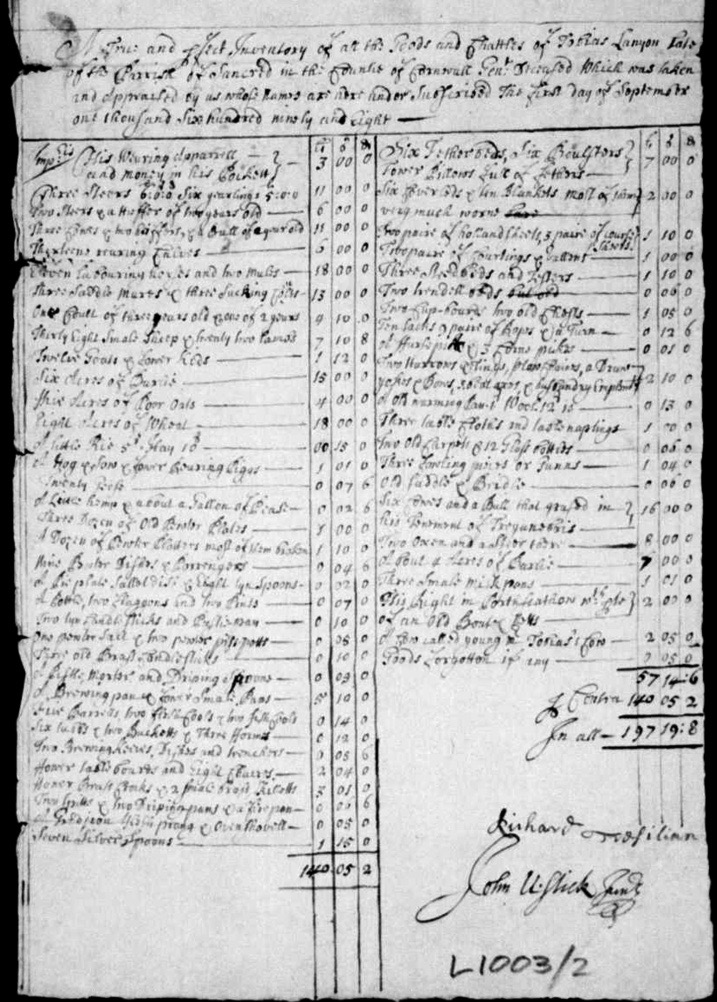 A True and pfect Inventory of all the Goods and Chattles of Tobias Lanyon Late
of the Parrish of Sancred in the Countie of Cornwall Gent Deceased Which was taken
and Appraised by us whose names are here under Subscribed The first day of September
one thousand Six hundred ninty and Eight
His Wearing Apparrell
and money in his Pockett 3 00 0
Three Steers Six yearlings 11 00 0
Two Steers & a heffer of two years old 6 00 0
Three Cowes & two heiffers, & a Bull of a year old 11 00 0
Thirteene rearing Calves 6 00 0
Labouring horses and two Mules 18 00 0
Three Saddle Mares & three Sucking Colts 13 00 0
One Coult of three years old & one of 2 years 4 10 0
Thirty Eight Small Sheep & twenty two Lambs 7 10 8
Twelve Goats & Fower Kids 1 12 0
Six Acres of Barlie 15 00 0
Acres of Poor Oats 4 00 0
Eight Acres of Wheat 18 00 0
A little Rie Hay 00 15 0
A Hog & Sow & fower Rearing Piggs 1 01 0
Twenty Geese 0 07 6
A Little hemp & about a Gallon of Pease 0 02 6
Three Dozen of Old Pewter Plates 1 00 0
A Dozen of Pewter Platters most of them broken 1 10 0
Nine Pewter Dishes & Porrengers 0 04 6
A Pie plate Sallet dish & Eight Tyn Spoons 0 02 0
A bottle, two Flaggons and two Pints 0 07 0
Two tyn Candle Sticks and 0 10 0
One pewter Salt & two pewter potts 0 08 0
Three old Brass Candlesticks 0 10 0
A Pestle, Morter and Driping Spoons 0 03 0
A Brewing pan & fower Small Pans 5 10 0
Five Barrells, two & two 0 14 0
Six tubbs & two Bucketts & Three 0 12 0
Two Brewing Keeves, Dishes and trenchers 0 05 6
Fower table boards and Eight Chaires 2 04 0
Fower Brass Crocks & 2 Small brass Kiletts 3 01 0
Two Spitts & two Driping pans & a fire pan 0 06 6
A Gridjeon flesh prong & Oven Shovell 0 05 0
Seven Silver Spoons 1 15 0
140 05 2
Six Fetherbeds, Six Boulsters
Fower Pillows full of Fethers 7 00 0
Six Coverleds & ten Blankets most of them
very much worne 2 00 0
two paire of holland sheets, 3 paire of course
Sheets 1 10 0
Two paire of Courtings & Vallens 1 00 0
Three Steedbeds and Testers 1 10 0
Two trendell beds 0 06 0
Two Cup-bourds two old Chests 1 05 0
Ten Sacks 9 paire of Ropes & a Turn 0 12 6
& 3 Corne pikes 0 01 0
Two Harrows
Yokes & Bows 2 10 0
0 13 0
Three table Cloths and table napkings 1 00 0
two old Carpets & 12 Glass bottles 0 06 0
Three Fowling pieces or Gunns 1 04 0
Old Saddle & Bridle 0 06 0
Six Cowes and a Bull that grased in
his Tenement of 16 00 0
Two Oxen and a Steer there 8 00 0
About 4 Acres of Barlie 7 00 0
Three Small Milk pans 1 01 0
His Right in 2 00 0
of an Old Boat & Netts
A Cow called young Tobias's Cow 2 05 0
Goods Forgotten if any 0 05 0
57 14:6
p Contra 140 05 2
In all 197 19:8
Richard Tresilian
John Ustick Junr
L1003/2